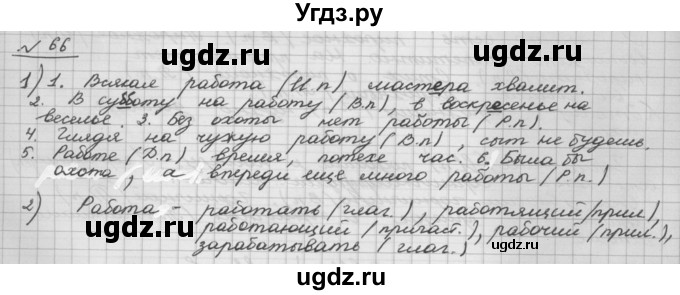 Угдз.ру
№ 66
1) 1. Всякая работа (И.п) мастера хвалит.
2. В субботу на работу (В.п), в воскресенье на
веселье. 3. Без охоты нет работы (Р.п).
4. Глядя на чужую работу (В.п), сыт не будешь.
5. Работе (Д.п) время, потехе час. 6. Была бы
охота, а впереди еще много работы (Р.п.)
2) Работа - работать (глаг.), работящий (прил),
работающий (причаст.), рабочий (прил.),
зарабатывать (глаг.)
ugdz.ru ugdz.ru
ugdz.ru ugdz.ru
ugdz.ru ugdz.ru
ugdz.ru